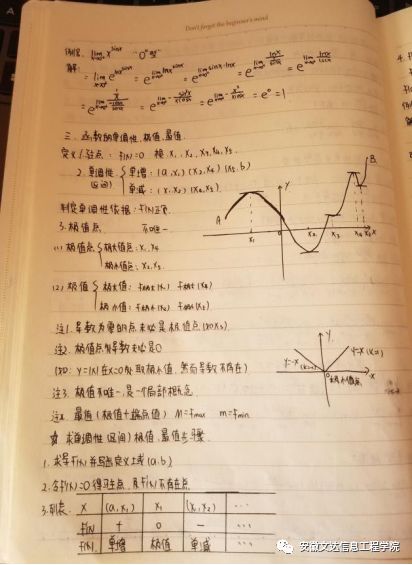 Don't forget the beginner's mind
lim x^sinx "0⁰型"
解:
= lim e^lnx^sinx = e^lim lnx^sinx = e^lim sinx·lnx
= e⁰ = 1
三. 函数的单调性、极值、最值.
定义1.驻点: f'(x)=0 根 x₁, x₂, x₃, x₄, x₅.
2.单调性 (区间) 单增: (a,x₁) (x₂,x₄) (x₅,b)
单减: (x₁,x₂) (x₄,x₅)
判定单调性依据: f'(x)正负.
3.极值点 不唯一
(1) 极值点 极大值点: x₁, x₄
极小值点: x₂,x₅
(2) 极值 极大值: f极大(x₁) f极大(x₄)
极小值: f极小(x₂) f极小(x₅)
A
B
y
0
x₁
x₂
x₃
x₄
x₅
x
注1. 导数为零的点未必是极值点(如x₃)
注2. 极值点处导数未必是0
(如: y=|x| 在x=0处取极小值, 然而导数不存在)
y
y=-x
y=x
0
极小值点
x
注3. 极值不唯一, 是一个局部概念.
注4. 最值 (极值+端点值) M=fmax m=fmin
☆ 求单调性(区间)极值、最值步骤.
1. 求导f'(x)并写出定义域(a,b)
2. 令f'(x)=0得驻点 及f'(x)不存在点
3.列表. x (a,x₁) x₁ (x₁,x₂) ...
f'(x) + 0 - ...
f(x) 单增 极值 单减 ...
安徽文达信息工程学院